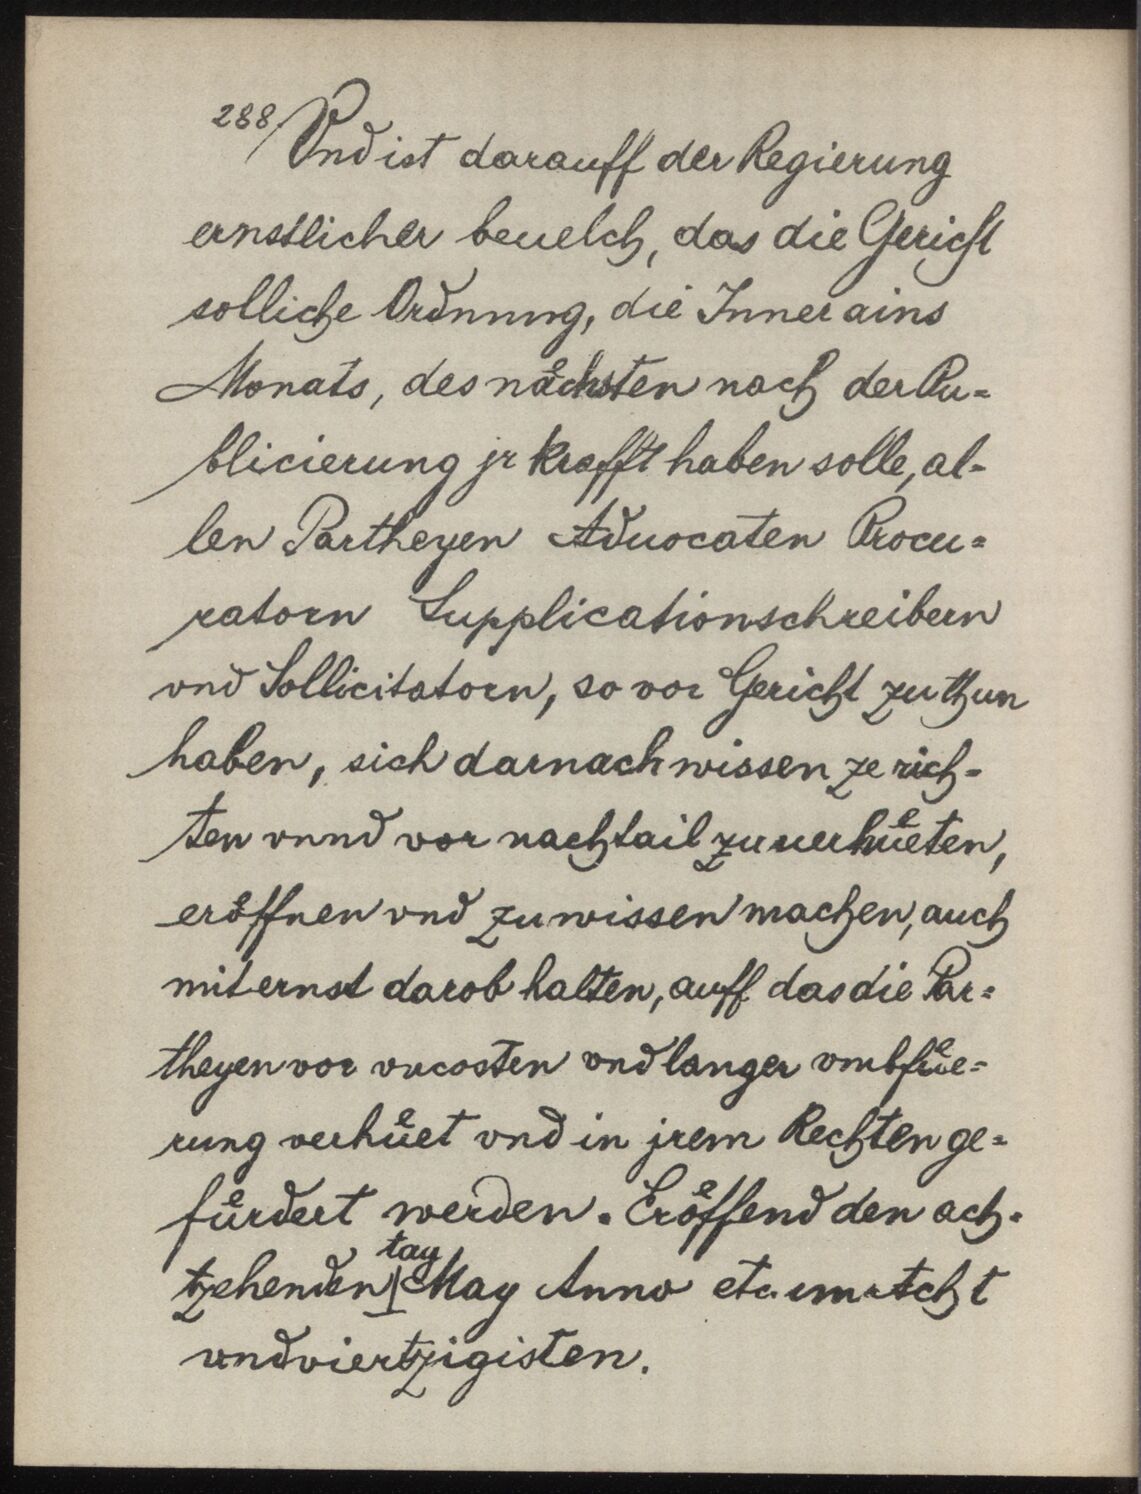 288/ Vnd ist darauff der Regierung
ernstlicher beuelch, das die Gericht
solliche Ordnung, die Inner ains
Monats, des nåchsten nach der Pu=
blicierung jr krafft haben solle, al-
len Partheyen Aduocaten Procu=
ratorn Supplicationschreibern
vnd Sollicitatorn, so vor Gericht zu thun
haben, sich darnach wissen ze rich-
ten vnnd vor nachtail zuuerhuͤeten,
eroͤffnen vnd zuwissen machen, auch
mit ernst darob halten, auff das die Par=
theyen vor vncosten vnd langer vmbfuͤe=
rung verhuͤet vnd in jrem Rechten ge=
fuͤrdert werden. Eroͤffend den ach-
tzehenden tag May Anno etc. im Acht
vndviertzigisten.